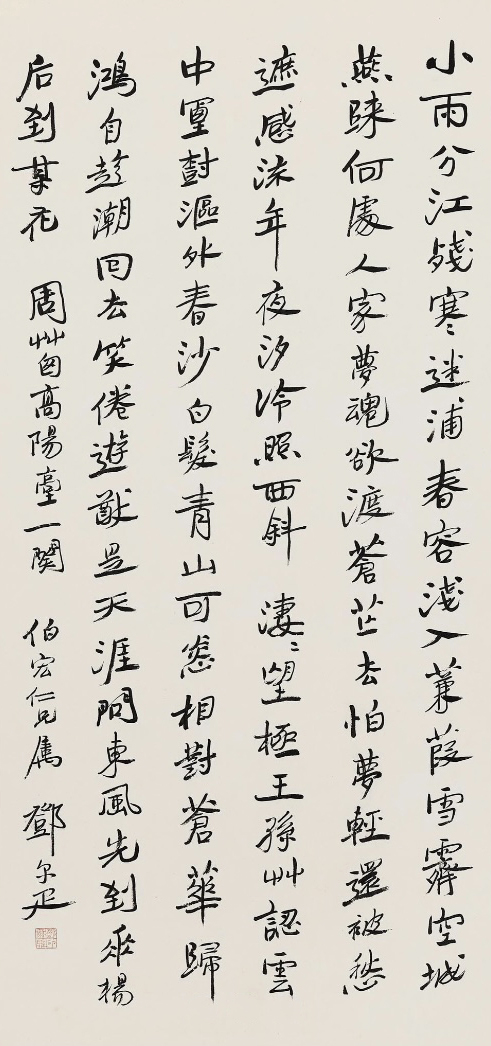 小雨分江殘寒迷浦春容淺入蒹葭雪霽空城
燕歸何處人家夢魂欲渡蒼茫去怕夢輕還被愁
遮感流年夜汐冷照西斜 淒〻望極王孫艸認雲
中亜尌漚外春沙白髮青山可怨相對蒼華歸
鴻自趁潮回去笑倦遊猷是天涯問東風先到垂楊
后到某花 周艸囱高陽臺一闋 伯宏仁兄屬 鄧尔疋